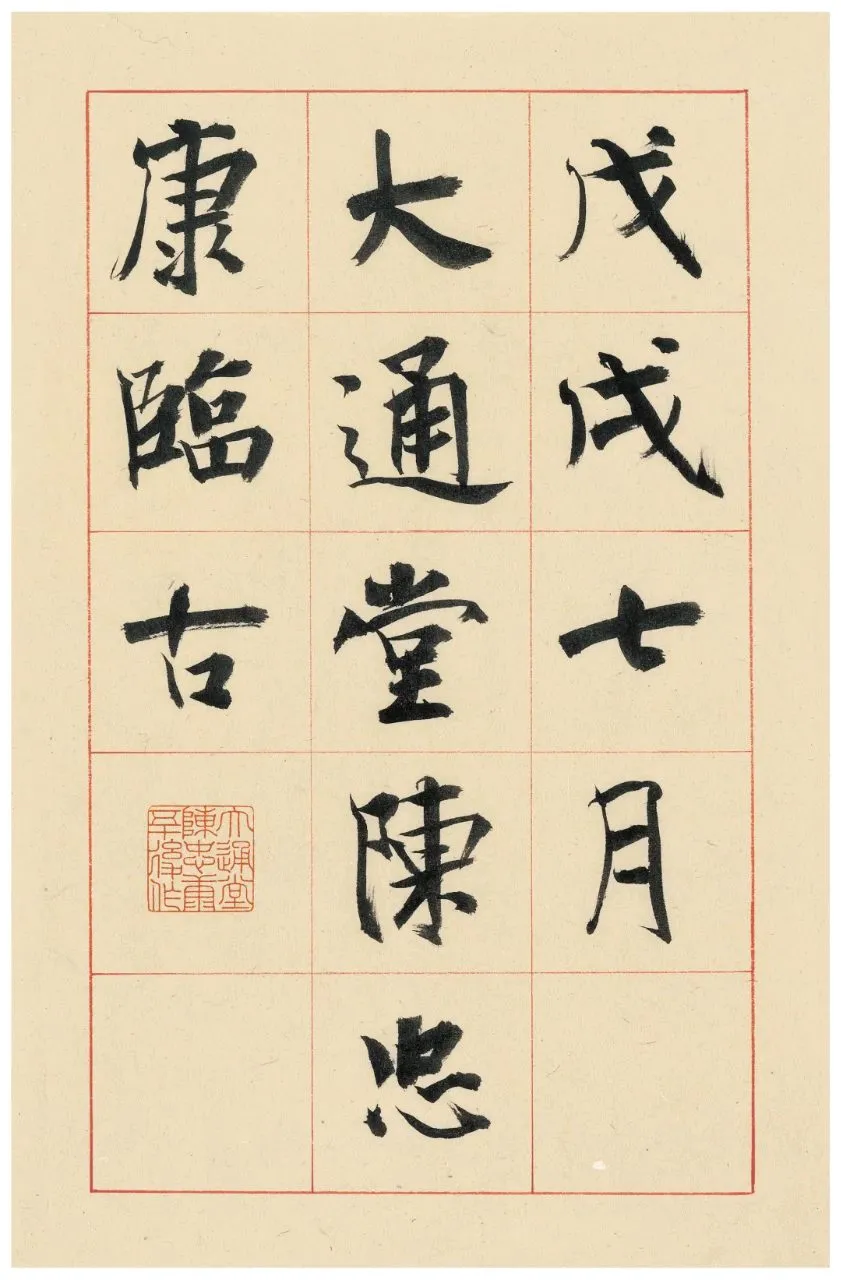 戊戌七月
大通堂陳忠
康臨古
大通堂
陳忠康